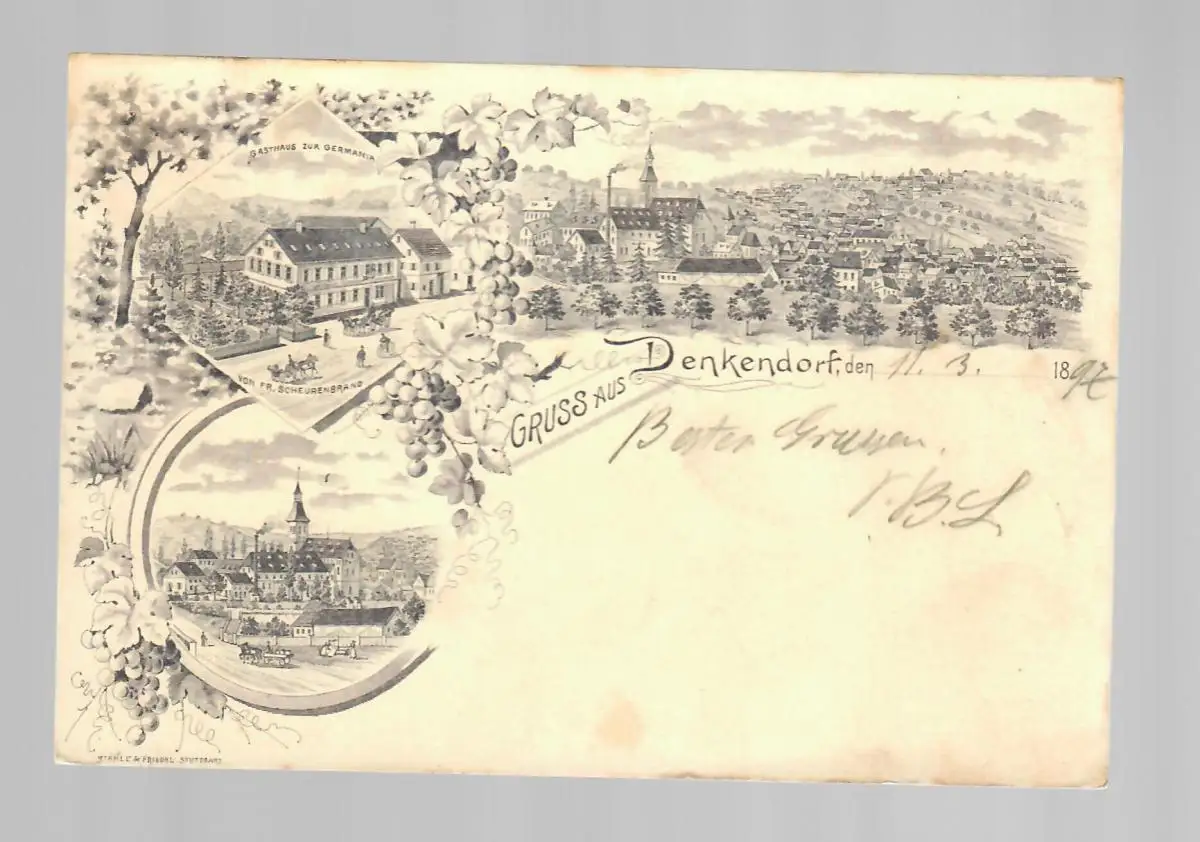 GASTHAUS ZUR GERMANIA
VON FR. SCHEURENBRAND
GRUSS AUS Denkendorf, den 11. 3. 1897
Besten Grussen.
v. B. L
STÄHLE & FRIEDEL STUTTGART